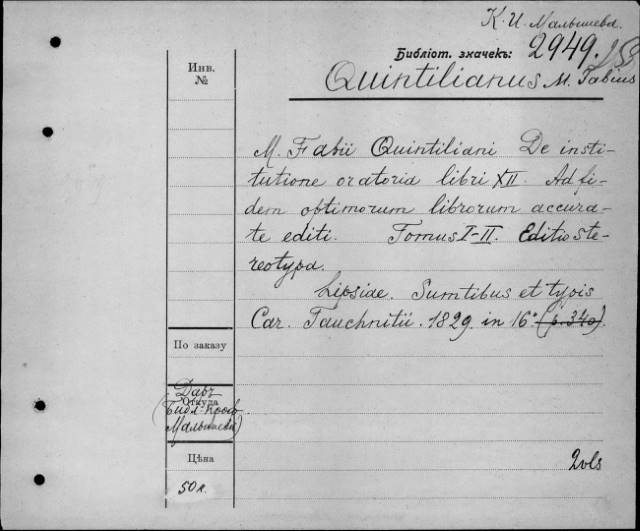 К. И. Малышева.
Библіот. значекъ: 2949.
Quintilianus M. Fabius
Инв.
№
M. Fabii Quintiliani De insti-
tutione oratoria libri XII. Ad fi-
dem optimorum librorum accura-
te editi. Tomus I-II. Editio ste-
reotypa.
Lipsiae. Sumtibus et typis
Car. Tauchnitii. 1829. in 16° (p. 340).
По заказу
Даръ
Откуда
(Библ. проф.
Малышева)
Цѣна
50 к.
2 vls